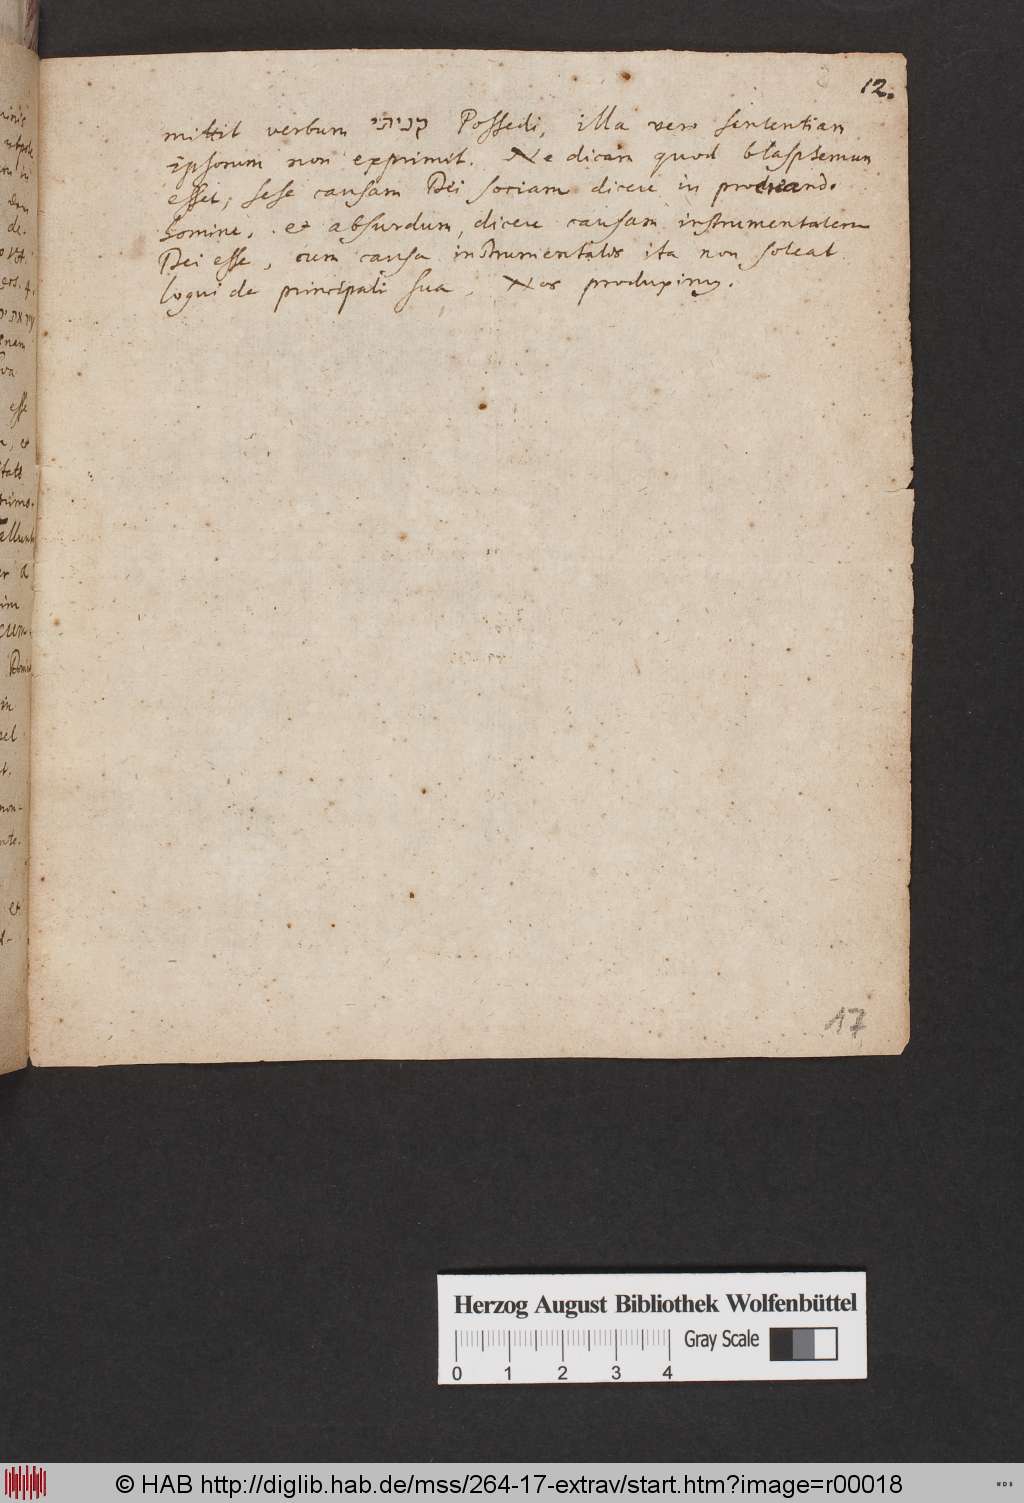 12.
mittit verbum קניתי Possedi, illa vero sententiam
ipsorum non exprimit. Ne dicam quod blasphemum
esset, sese causam Dei sociam dicere in procreando
homine, et absurdum, dicere causam instrumentalem
Dei esse, cum causa instrumentalis ita non soleat
loqui de principali sua, Nos produximus.
17
Herzog August Bibliothek Wolfenbüttel
Gray Scale
0 1 2 3 4
© HAB http://diglib.hab.de/mss/264-17-extrav/start.htm?image=r00018